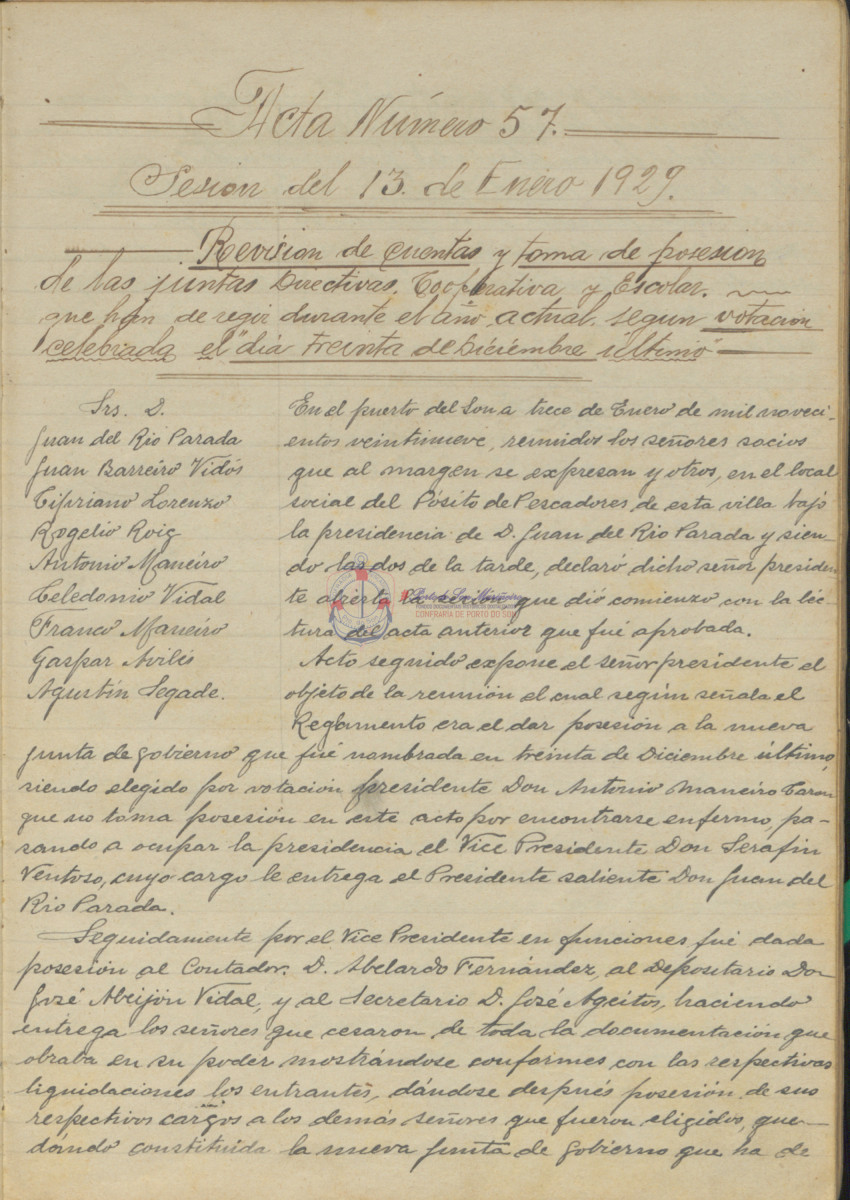 Acta Número 57.
Sesion del 13 de Enero 1929.
Revision de cuentas y toma de posesion
de las juntas Directivas. Cooperativa y Escolar.
que han de regir durante el año actual. segun votación
celebrada el "dia treinta de Diciembre último"
Srs. D.
Juan del Rio Parada
Juan Barreiro Vidós
Cipriano Lorenzo
Rogelio Roig
Antonio Maneiro
Celedonio Vidal
Franco Maneiro
Gaspar Avilés
Agustín Segade.
En el puerto del Son a trece de Enero de mil noveci-
entos veintinueve, reunidos los señores socios
que al margen se expresan y otros, en el local
social del Pósito de Pescadores de esta villa bajo
la presidencia de D. Juan del Rio Parada y sien-
do las dos de la tarde, declaró dicho señor presiden-
te abierta la sesión que dió comienzo con la lec-
tura del acta anterior que fué aprobada.
Acto seguido expone el señor presidente el
objeto de la reunión el cual según señala el
Reglamento era el dar posesión a la nueva
junta de gobierno que fué nombrada en treinta de Diciembre último,
siendo elegido por votación presidente Don Antonio Maneiro
que no toma posesión en este acto por encontrarse enfermo, pa-
sando a ocupar la presidencia el Vice Presidente Don Serafin
Ventoso, cuyo cargo le entrega el Presidente saliente Don Juan del
Rio Parada.
Seguidamente por el Vice Presidente en funciones fué dada
posesión al Contador. D. Abelardo Fernández, al Depositario Don
José Abeijón Vidal, y al Secretario D. José Ageitos, haciendo
entrega los señores que cesaron de toda la documentación que
obraba en su poder mostrándose conformes con las respectivas
liquidaciones los entrantes, dándose después posesión de sus
respectivos cargos a los demás señores que fueron eligidos, que-
dándo constituida la nueva junta de gobierno que ha de
CONFRARIA DE PORTO DO SON